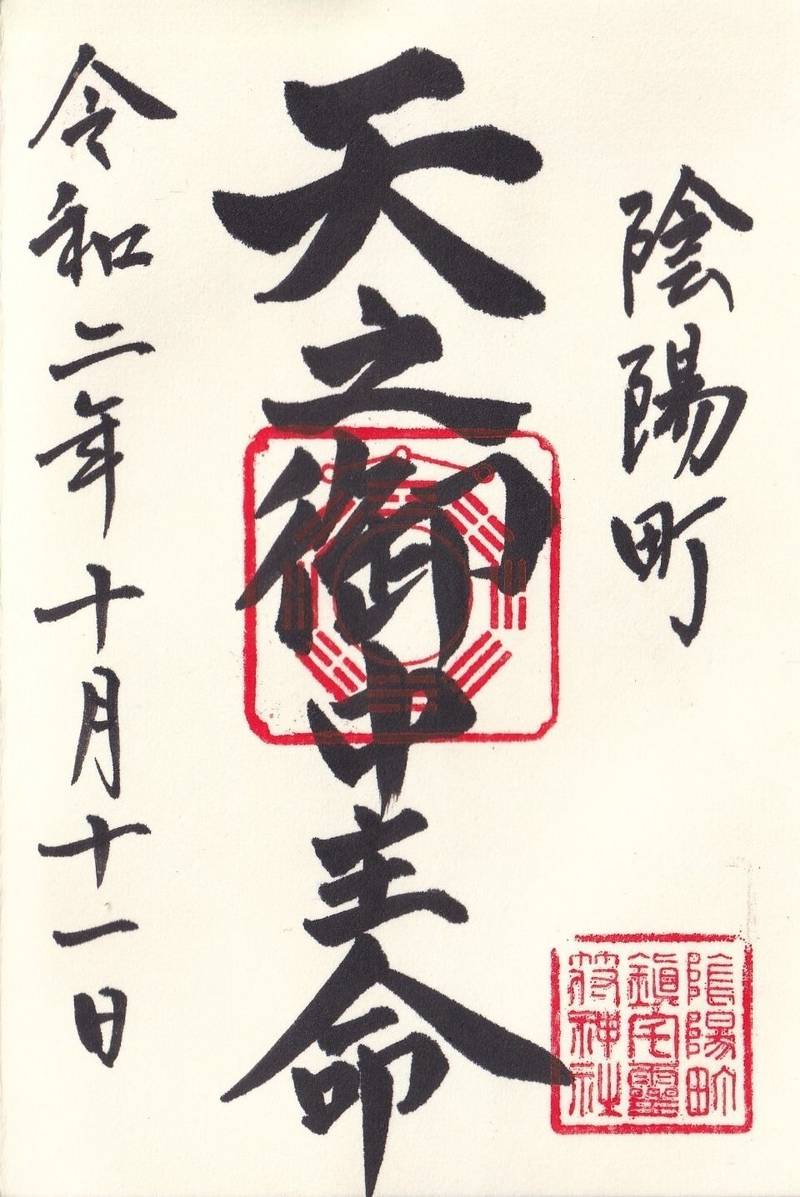 陰陽町
天之御中主命
令和二年十月十一日
陰陽町
鎮宅霊
符神社